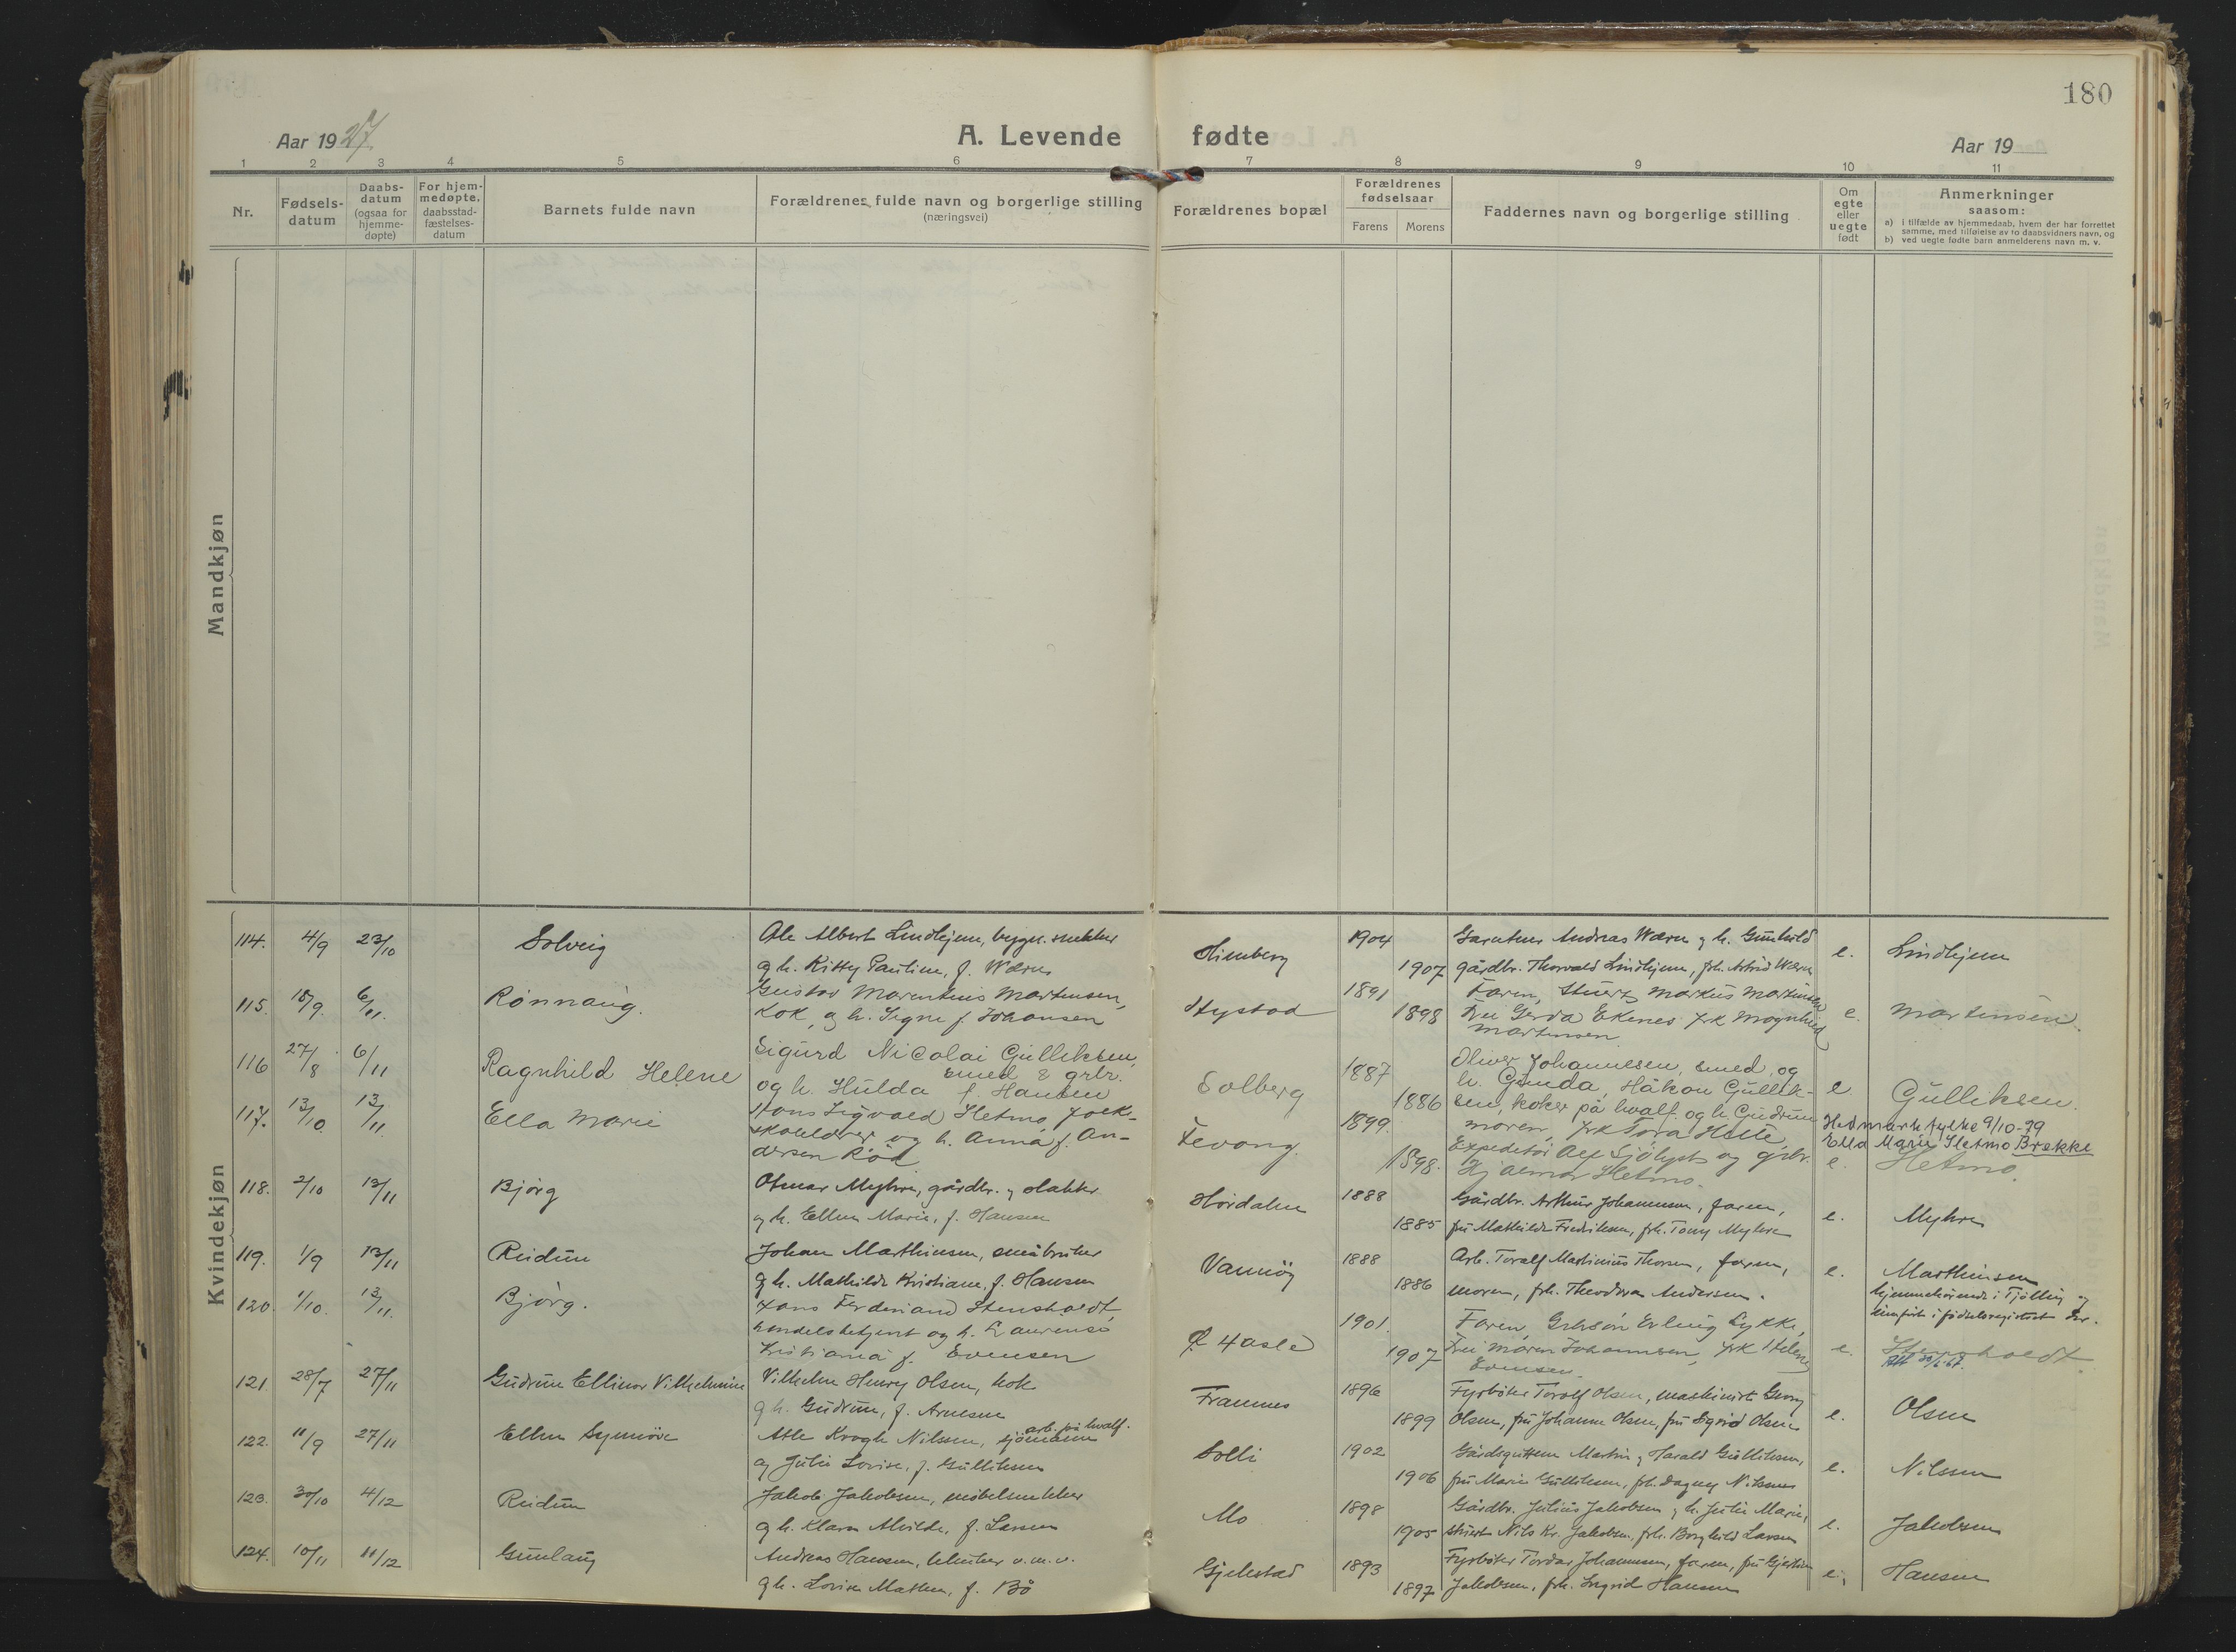 180
Aar 1927.
A. Levende fødte
Aar 19
1 2 3 4 5 6 7 8 9 10 11
Nr.
Fødsels-
datum
Daabs-
datum
(ogsaa for
hjemme-
døpte)
For hjem-
medøpte,
daabsstad-
fæstelses-
datum
Barnets fulde navn
Forældrenes fulde navn og borgerlige stilling
(næringsvei)
Forældrenes bopæl
Forældrenes
fødselsaar
Farens Morens
Faddernes navn og borgerlige stilling
Om
egte
eller
uegte
født
Anmerkninger
saasom:
a) i tilfælde av hjemmedaab, hvem der har forrettet
samme, med tilføielse av to daabsvidners navn, og
b) ved uegte fødte barn anmelderens navn m. v.
Mandkjøn
Kvindekjøn
114. 4/9 23/10 Solveig
Ole Albert Lindhjem, bygn. snekker
og h. Kitty Pauline, f. Wærn
Himberg 1904 1907
Gartner Andreas Wærn og h. Gunhild
gårdbr. Thorvald Lindhjem, frk. Astrid Wærn
e. Lindhjem
115. 18/9. 6/11. Rønnaug.
Gustav Marentius Martensen,
Kok, og h. Signe f. Johansen
Hystad 1891 1898
Faren, Stuert Markus Martinsen
Fru Gerda Ekenes frk Magnhild
Martensen
e. Martensen.
116 27/8 6/11 Ragnhild Helene
Sigurd Nicolai Gulliksen,
smed & grbr.
og h. Hulda f. Hansen
Solberg 1887 1886
Oliver Johannesen, smed, og
h. Gunda, Håkon Gullik-
sen, koker på hvalf. og h. Gudrun
e. Gulliksen.
117. 13/10. 13/11. Ella Marie
Hans Sigvald Hetmo, folk-
skolelærer og h. Anna f. An-
dersen Rød
Fevang. 1899. 1898.
moren, frk Tora Holte,
Expeditør Alf Sjölyst og grbr.
Hjalmar Hetmo.
Hedmark fylke 9/10-79
Ella Marie Hetmo Brekke
e. Hetmo.
118. 2/10 13/11 Bjørg
Otmar Myhre, gårdbr. og slakter
og h. Ellen Marie, f. Hansen
Hørdalen 1888 1885
Gårdbr. Arthur Johannesen, faren,
fru Mathilde Fredriksen, frk. Tony Myhre
e. Myhre
119. 1/9 13/11 Reidun
Johan Marthinsen, småbruker
og h. Mathilde Kristiane, f. Hansen
Vannøy 1888 1886
Arb. Toralf Martinius Thorsen, faren,
moren, frk. Theodora Andersen.
e. Marthinsen
hjemmehørende i Tjølling og
innført i fødselsregistret der.
120. 1/10. 13/11. Bjørg.
Hans Ferdinand Stensholdt,
handelsbetjent og h. Laurense
Kristiana f. Evensen
Hasle 1901. 1907
Faren, Erling Lykke,
Fru Maren Johannsen, frk Helene
Evensen.
e. Stensholdt
121. 28/7 27/11 Gudrun Ellinor Vilhelmine
Vilhelm Henry Olsen, kok
og h. Gudrun, f. Arnesen
Framnes 1896 1899
Fyrbøter Toralf Olsen, maskinist Georg
Olsen, fru Johanne Olsen, fru Sigrid Olsen
e. Olsen
122. 11/9 27/11 Ellen Synnöve
Atle Krogh Nilssen, sjömann arb. på hvalf.
og Julie Lovise, f. Gulliksen
Solli 1902 1906
Gårdsgutten Martin og Harald Gulliksen,
fru Marie Gulliksen, frk. Dagny Nilssen
e. Nilssen
123. 30/10 4/12 Reidun
Jakob Jakobsen, møbelsnekker
og h. Klara Alvilde, f. Larsen
Mo 1898 1905
Gårdbr. Julius Jakobsen og h. Julie Marie,
stuert Nils Kr. Jakobsen, frk. Borghild Larsen
e. Jakobsen
124. 10/11 11/12 Gunlaug
Andreas Hansen, v.m.v.
og h. Lovise Mathea, f. Bö
Gjelstad 1893 1897
Fyrbøter Tordar Johannesen, faren, fru
Jakobsen, frk. Ingrid Hansen
e. Hansen